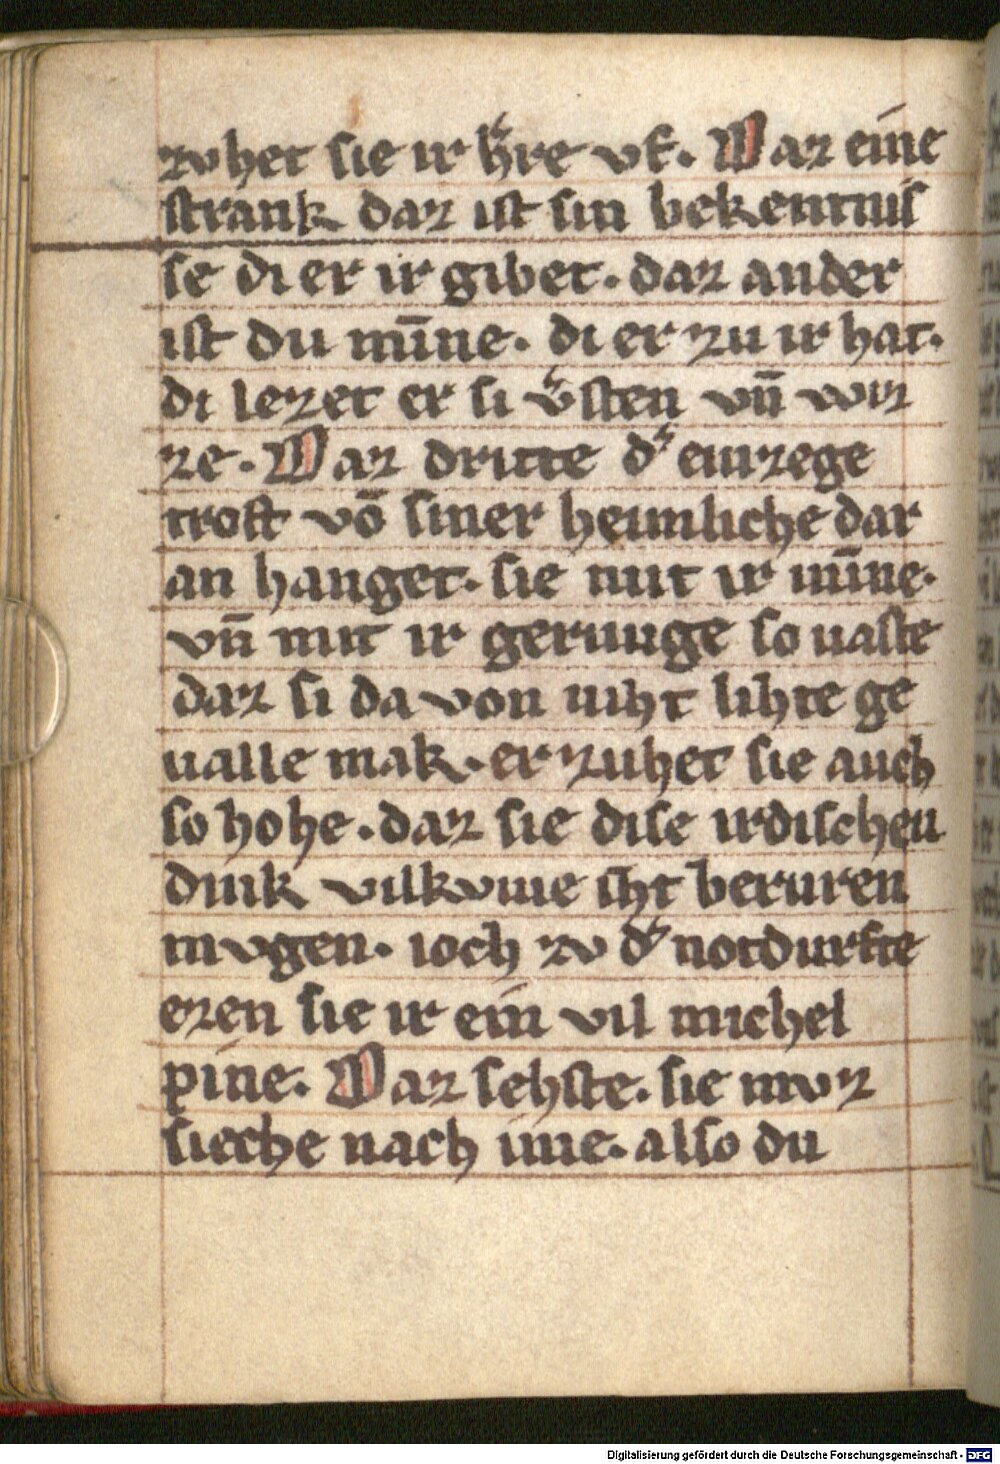 zvhet sie ir hʼre vf. Daz eine
strank daz ist sin bekentnis
se di er ir gibet. daz ander
ist du mīne. di er zu ir hat.
di lezet er si vʼsten vn̄ wir
ze. Daz dritte dʼ einzege
trost vō siner heimliche dar
an hanget. sie mit ir mīne.
vn̄ mit ir gerunge so uaste
daz si da von niht lihte ge
ualle mak. er zuhet sie auch
so hohe. daz sie dise irdischen
dink vilkvme iht beruren
mvgen. ioch zv dʼ notdurfte
ezen sie ir ein vil michel
pine. Daz sehste. sie mvz
sieche nach ime. also du
Digitalisierung gefördert durch die Deutsche Forschungsgemeinschaft - DFG